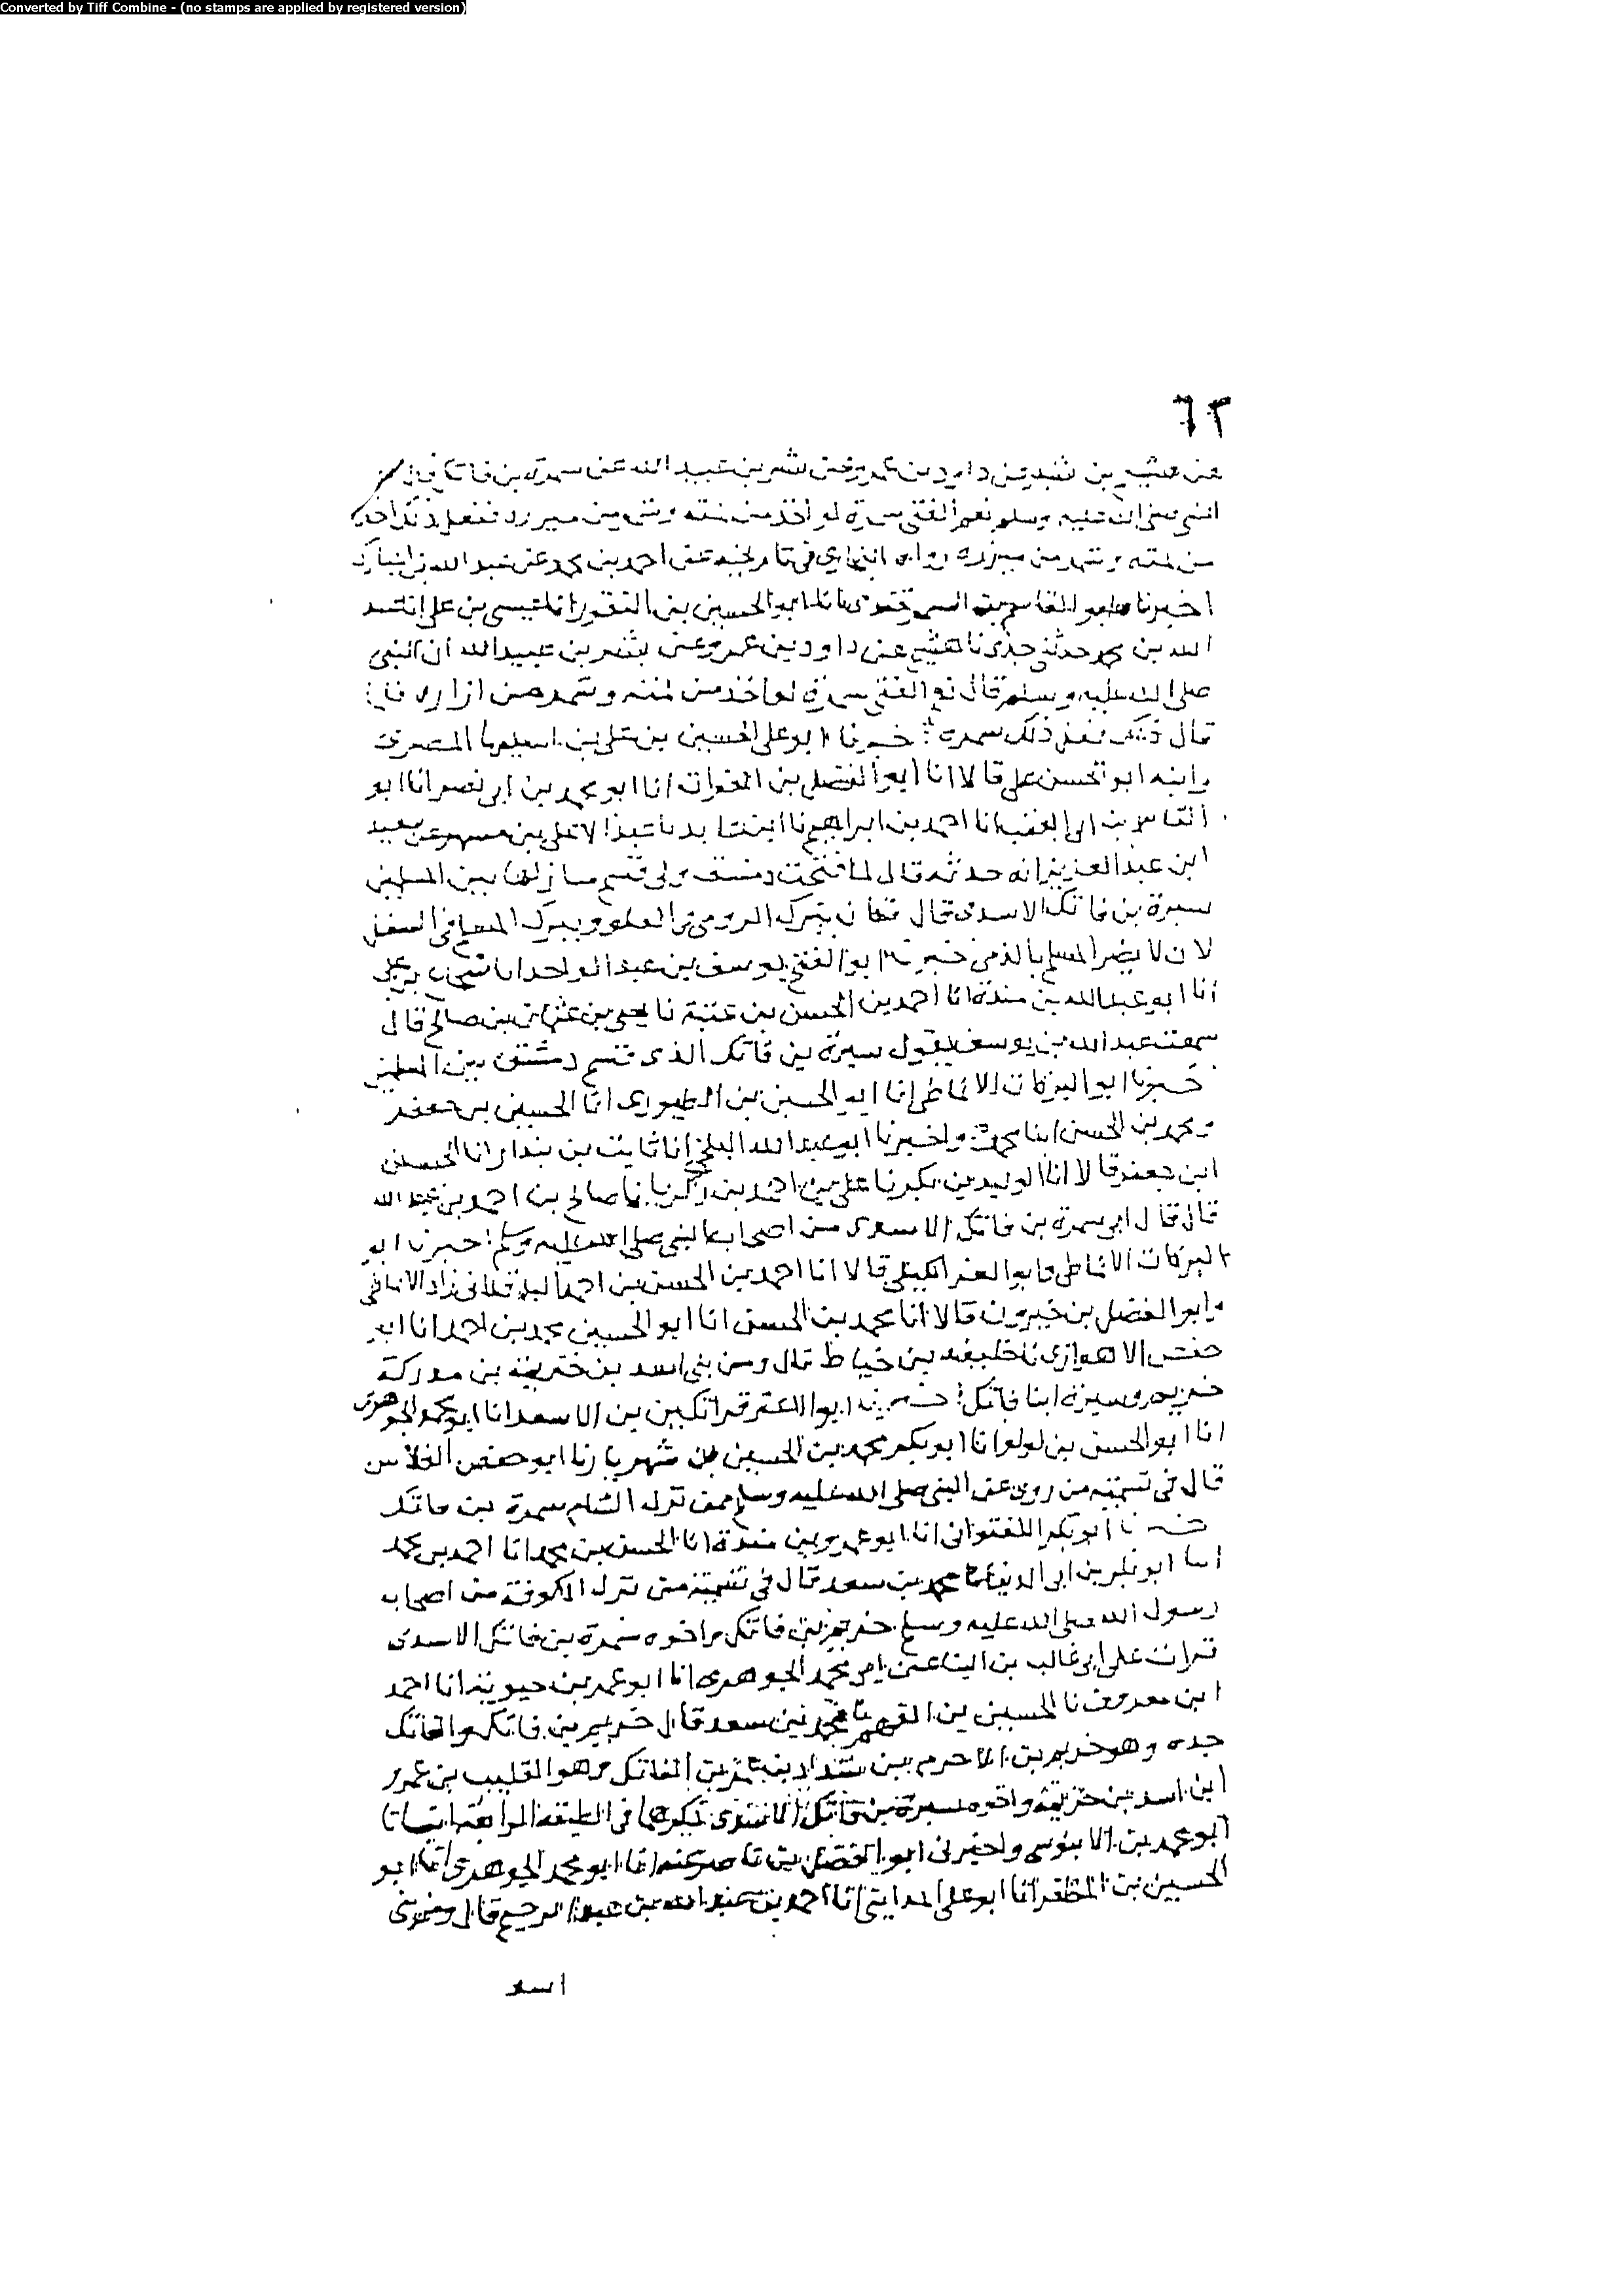 Converted by Tiff Combine - (no stamps are applied by registered version)
٦٢
عن هشيم بن بشير عن داود بن عمرو عن بشر بن عبيد الله عن سمرة بن فاتك قال
النبي صلى الله عليه وسلم نعم الفتى سمرة لو اخذ من لمته وشمر من ميزره ففعل ذلك اخذ
من لمته وشمر من ميزره رواه البخاري في تاريخه عن احمد بن محمد عن عبد الله بن المبارك
اخبرنا ابو القاسم بن السمرقندي انا ابو الحسين بن النقور انا عيسى بن علي انا عبد
الله بن محمد حدثني جدي نا هشيم عن داود بن عمرو عن بشر بن عبيد الله ان النبي
صلى الله عليه وسلم قال نعم الفتى سمرة لو اخذ من لمته وشمر من ازاره قال
قال ففعل ذلك سمرة اخبرنا ابو علي الحسين بن علي بن المصري
وابنه ابو الحسن علي قالا انا ابو الفضل بن الفرات انا ابو محمد بن ابي نصر انا ابو
القاسم بن ابي العقب انا احمد بن ابراهيم نا ابن عايد نا عبد الاعلى بن مسهر عن سعيد
ابن عبد العزيز انه حدثه قال لما فتحت دمشق ولي قسم منازلها بين المسلمين
سبرة بن فاتك الاسدي قال فكان يترك الرومي في العلو ويترك المسلم في السفل
لان لا يضر المسلم بالذمي اخبرنا ابو الفتح يوسف بن عبد الواحد انا شجاع بن علي
انا ابو عبد الله بن مندة انا احمد بن الحسن بن عتبة نا يحيى بن عثمان بن صالح قال
سمعت عبد الله بن يوسف يقول سبرة بن فاتك الذي قسم دمشق بين المسلمين
اخبرنا ابو البركات الانماطي انا ابو الحسين بن الطيوري انا الحسين بن جعفر
ومحمد بن الحسن واخبرنا ابو عبد الله البلخي انا ثابت بن بندار انا الحسين
ابن جعفر قالا انا الوليد بن بكر نا علي بن احمد بن زكريا نا صالح بن احمد بن عبد الله
قال قال ابي سمرة بن فاتك الاسدي من اصحاب النبي صلى الله عليه وسلم اخبرنا ابو
البركات الانماطي وابو العز الكيلي قالا انا احمد بن الحسن بن احمد الباقلاني زاد الانماطي
وابو الفضل بن خيرون قالا انا محمد بن الحسن انا ابو الحسين محمد بن احمد انا ابو
حفص الاهوازي نا خليفة بن خياط قال ومن بني اسد بن خزيمة بن مدركة
خريم وسبرة ابنا فاتك اخبرنا ابو الاعز قراتكين بن الاسعد انا ابو محمد الجوهري
انا ابو الحسن بن لولو انا ابو بكر محمد بن الحسين بن شهريار نا ابو حفص الفلاس
قال في تسمية من روى عن النبي صلى الله عليه وسلم ممن نزل الشام سمرة بن فاتك
اخبرنا ابو بكر اللفتواني انا ابو عمرو بن مندة انا الحسن بن محمد انا احمد بن محمد
انا ابو بكر بن ابي الدنيا نا محمد بن سعد قال في تسمية من نزل الكوفة من اصحاب
رسول الله صلى الله عليه وسلم خريم بن فاتك واخوه سمرة بن فاتك الاسدي
قرات على ابي غالب بن البنا عن ابي محمد الجوهري انا ابو عمر بن حيويه انا احمد
ابن معروف نا الحسين بن الفهم نا محمد بن سعد قال خريم بن فاتك والفاتك
جده وهو خريم بن الاخرم بن شداد بن عمرو بن الفاتك وهو القليب بن عمرو
ابن اسد بن خزيمة واخوه سبرة بن فاتك الاسدي في الطبقة الرابعة انبانا
ابو محمد بن الابنوسي واخبرني ابو الفضل بن ناصر عنه انا ابو محمد الجوهري انا ابو
الحسين بن المظفر انا ابو علي المدايني انا احمد بن عبد الله بن عبد الرحيم قال ومن بني
اسد